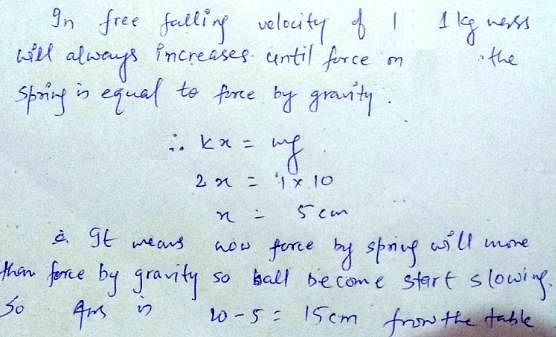 In free falling velocity of 1 1 kg mass
will always increases until force on the
spring is equal to force by gravity.
∴ kx = mg
2x = 1 x 10
x = 5 cm
It means now force by spring will more
than force by gravity so ball become start slowing.
So Ans is 20-5 = 15cm from the table